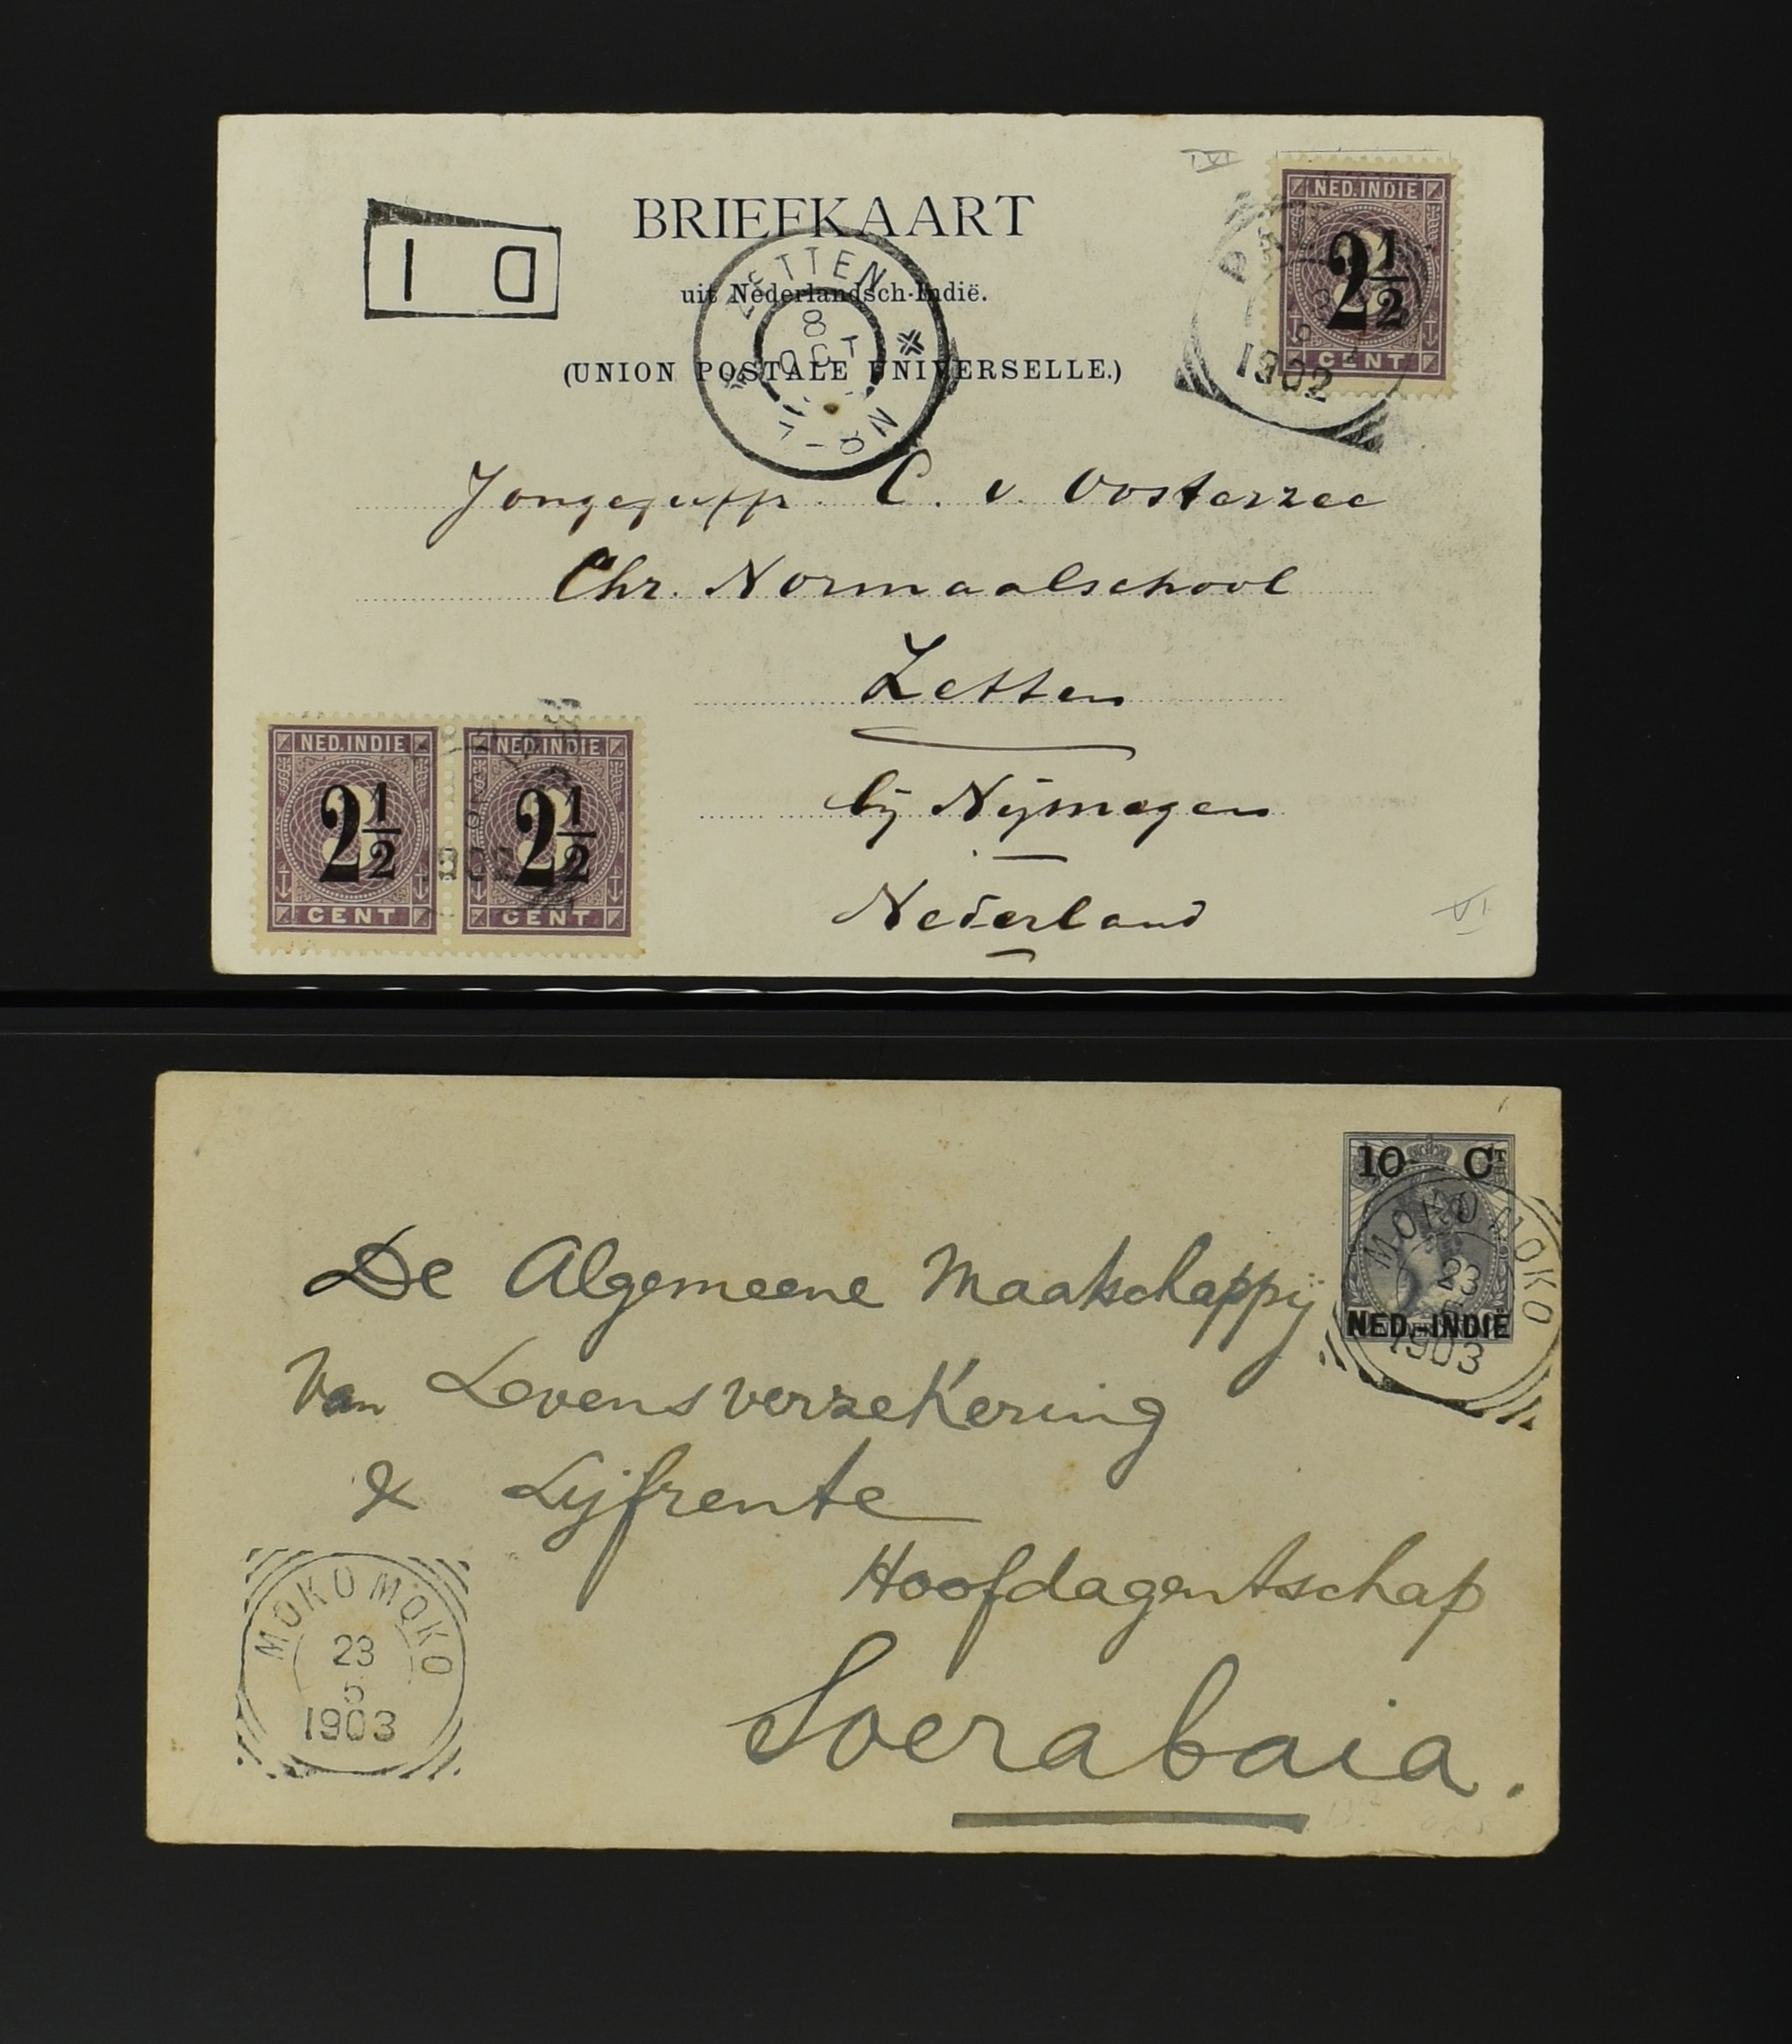 BRIEFKAART
uit Nederlandsch-Indië.
(UNION POSTALE UNIVERSELLE.)
I D
ZETTEN
8
OCT
NED.INDIE
2½
CENT
1902
Jongejuffr. C. v. Oosterzee
Chr. Normaalschool
Zetten
bij Nijmegen
Nederland
NED.INDIE NED.INDIE
2½ 2½
CENT CENT
VI
10 CT
NED.-INDIË
MOKOMOKO
23
5
1903
De Algemeene Maatschappij
Van Levensverzekering
& Lijfrente
Hoofdagentschap
Soerabaia.
MOKOMOKO
23
5
1903